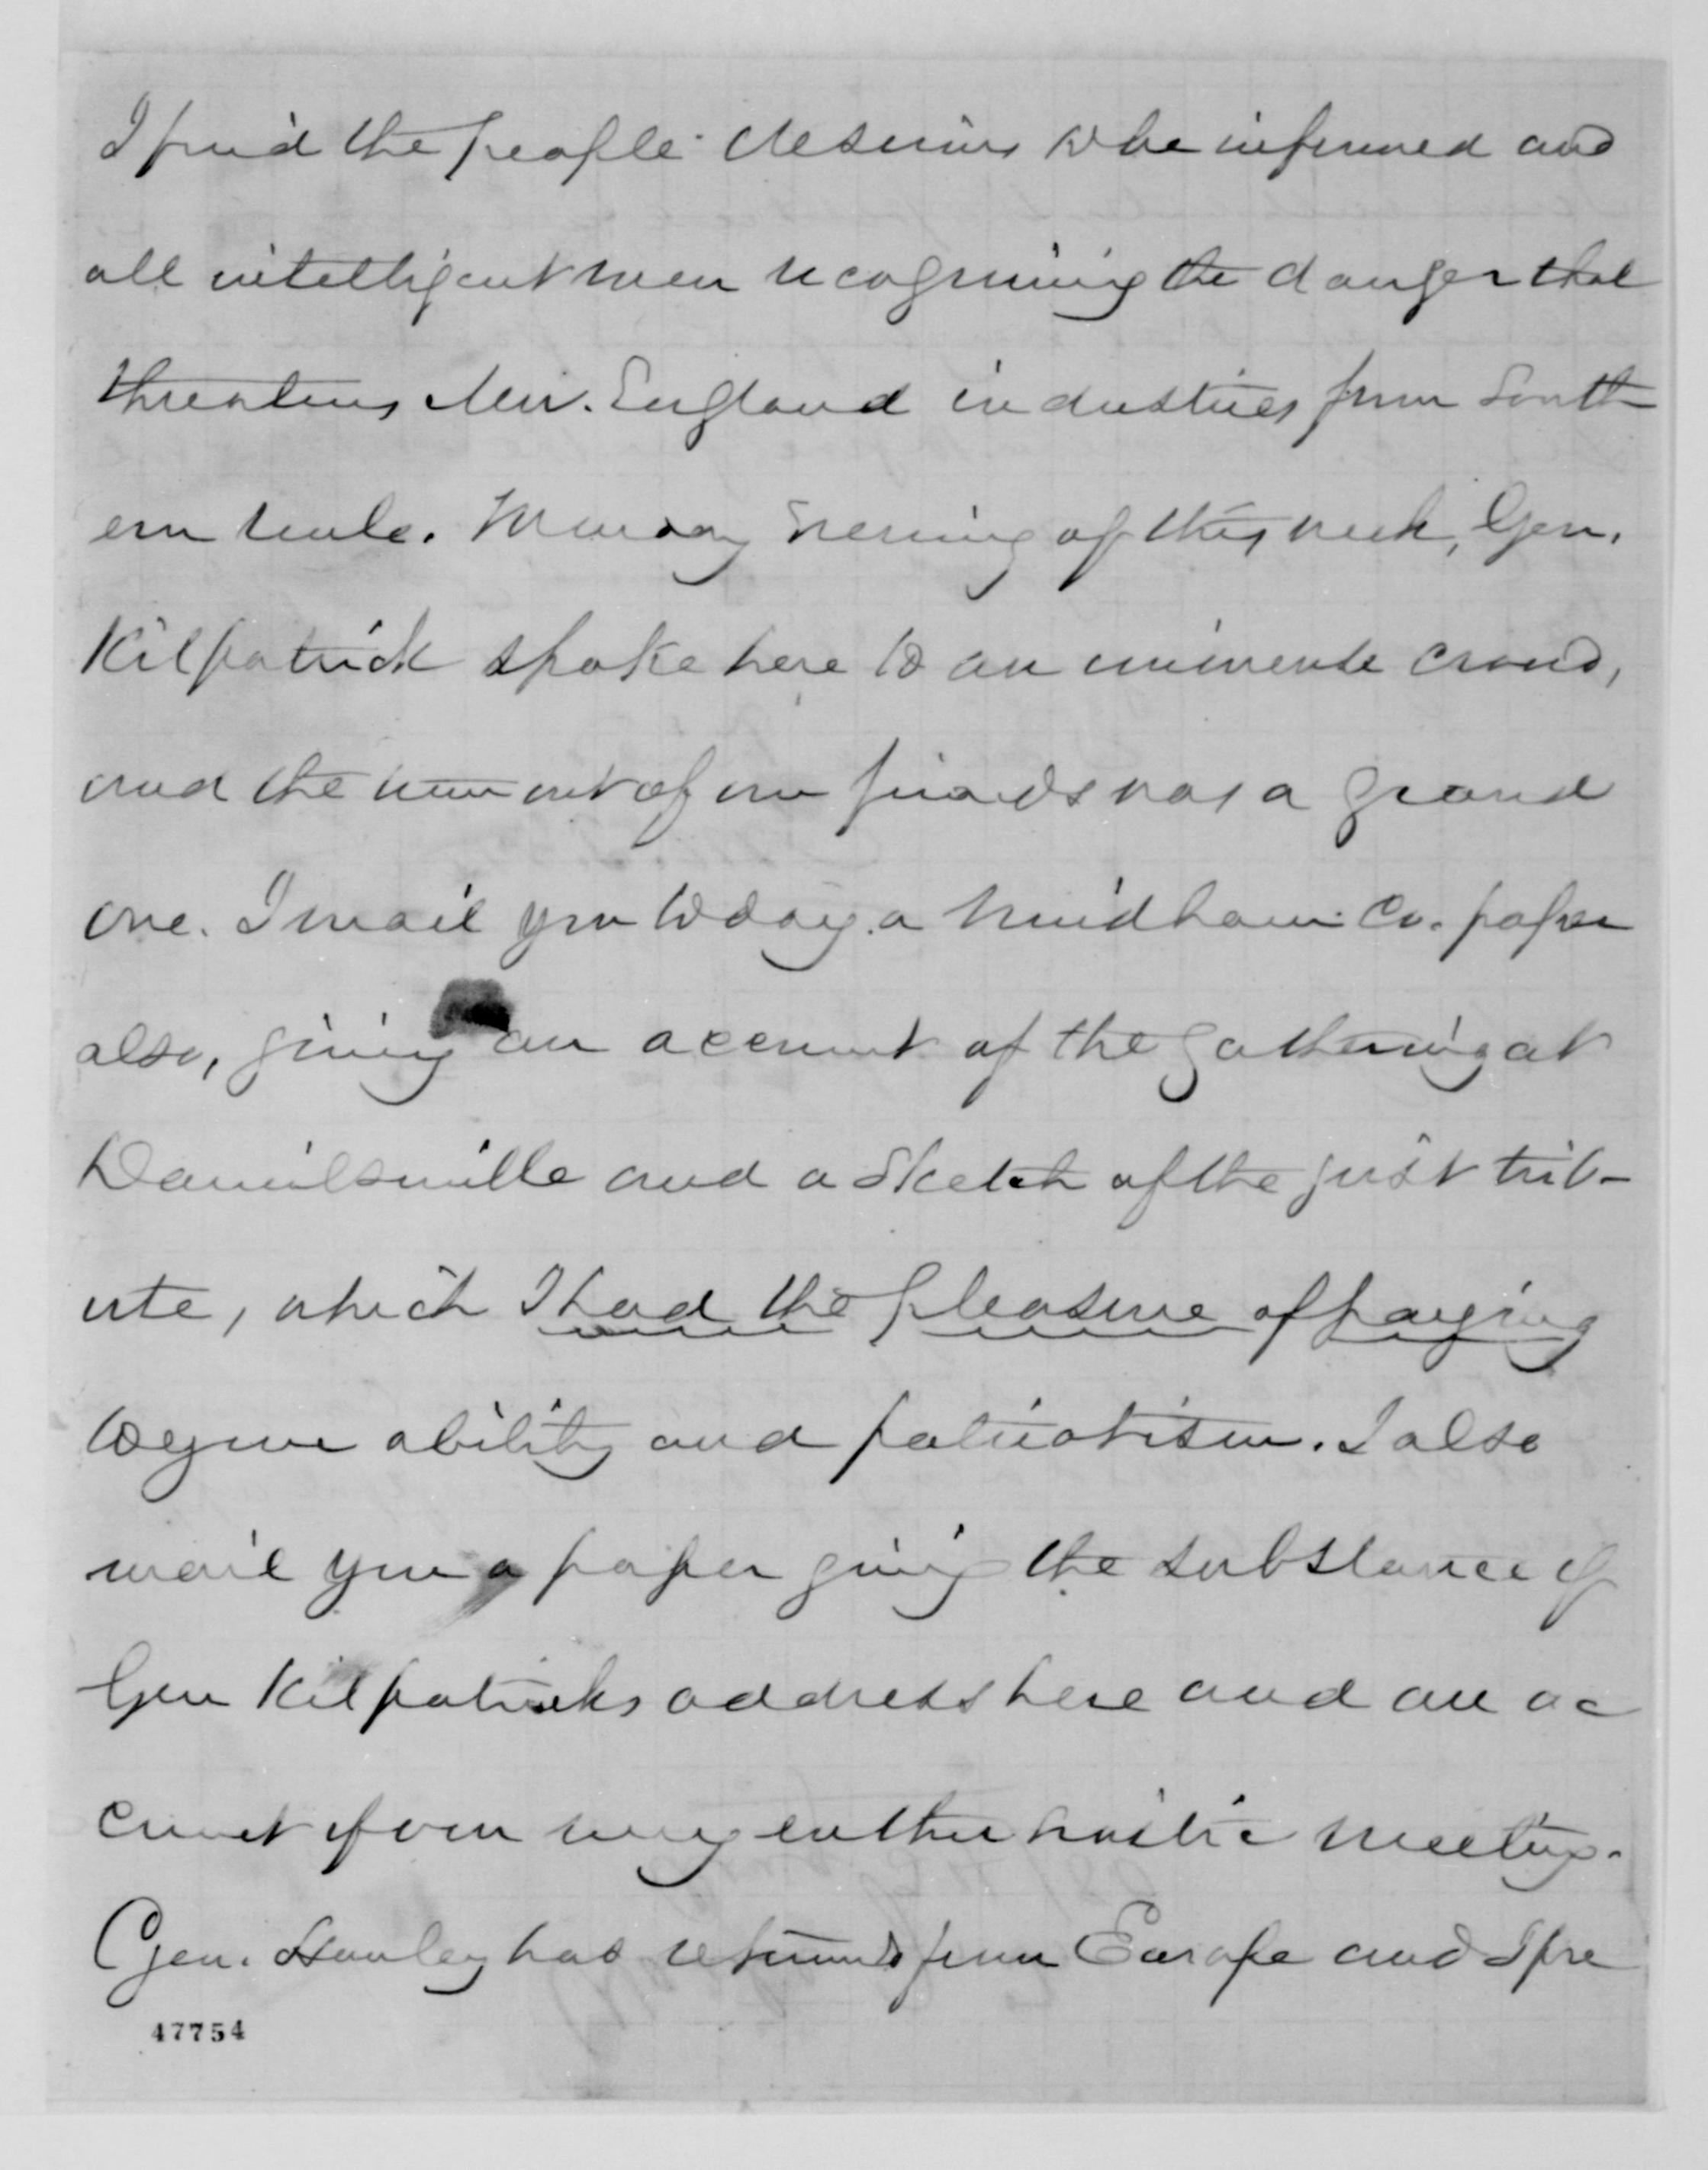 I find the people desirous to be informed and
all intelligent men recognizing the danger that
threatens New. England industries from South-
ern rule. Monday Evening of this week, Gen.
Kilpatrick spoke here to an immense crowd,
and the turn out of our friends was a grand
one. I mail you today a Windham Co. paper
also, giving an account of the gathering at
Danielsonville and a sketch of the just trib-
ute, which I had the pleasure of paying
to your ability and patriotism. I also
mail you a paper giving the substance of
Gen Kilpatricks address here and an ac
count of our very enthusiastic meeting.
Gen. Hawley has returned from Europe and I pre
47754